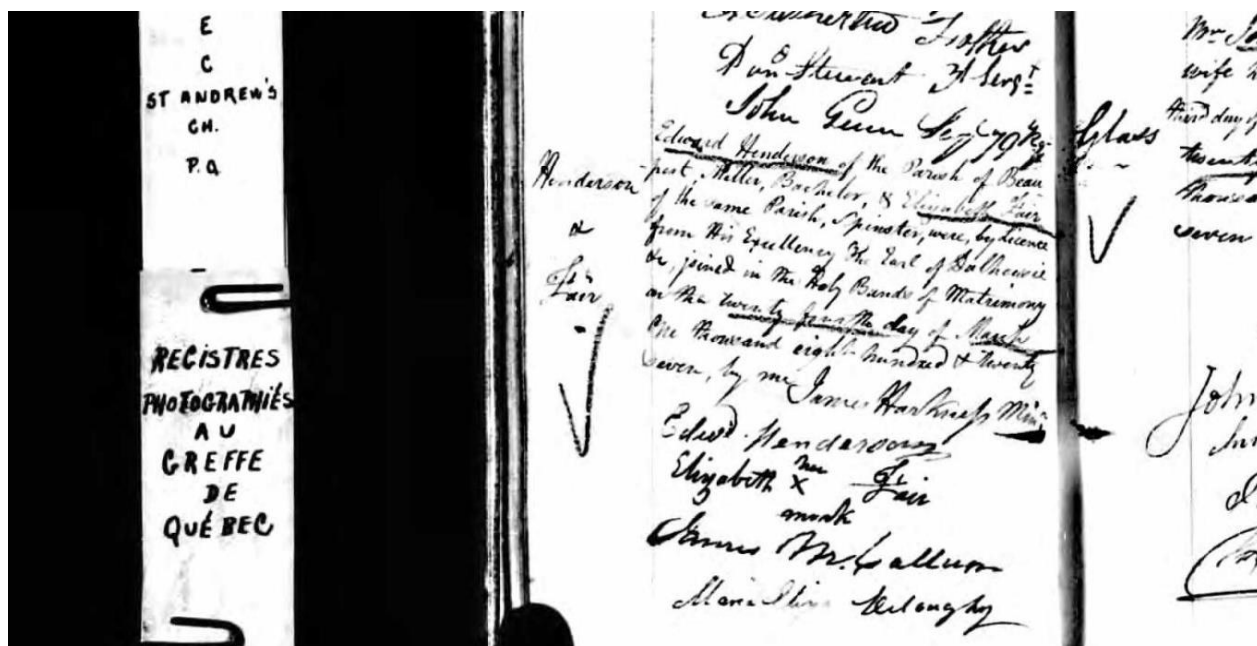 E
C
ST ANDREW'S
CH.
P.Q
REGISTRES
PHOTOGRAPHIÉS
AU
GREFFE
DE
QUÉBEC
Henderson
&
Fair
Stewart
John Gunn
Edward Henderson of the Parish of Beau
port, Miller, Bachelor, & Elizabeth Fair
of the same Parish, Spinster, were, by Licence
from His Excellency The Earl of Dalhousie
&c, joined in the Holy Bands of Matrimony
on the twenty fourth day of March
One thousand eight hundred & twenty
seven, by me James Harkness Minr
Edwd. Henderson
Elizabeth her X Fair
mark
James McCallum
Maria Willoughby
Glass
Mr
wife
third day of
twenty
thousa
seven
John